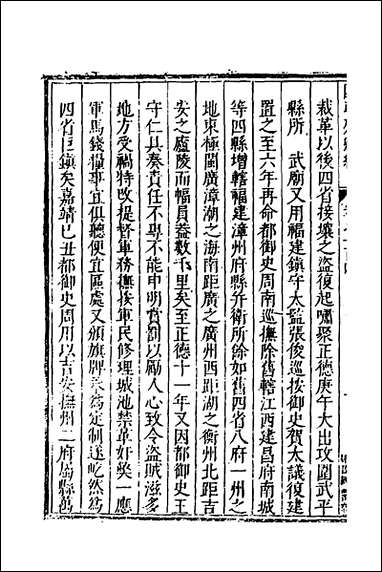 裁革以後四省接壤之盜復起嘯聚正德庚午大出攻圍武平
縣所　武廟又用福建鎮守太監張俊巡按御史賀太議復建
置之至六年再命都御史周南巡撫除舊轄江西建昌府南城
等四縣增轄福建漳州府縣并衛所餘如舊四省八府一州之
地東極閩廣漳潮之海南距廣之廣州西距湖之衡州北距吉
安之廬陵而幅員益數千里矣至正德十一年又因都御史王
守仁具奏責任不專不能申明賞罰以勵人心致令盜賊滋多
地方受禍特改提督軍務撫按軍民修理城池禁革奸獘一應
軍馬錢糧事宜俱聽便宜區處又頒旗牌　為定制遂屹然為
四省巨鎮矣嘉靖己丑都御史周用以吉安撫州二府屬縣萬